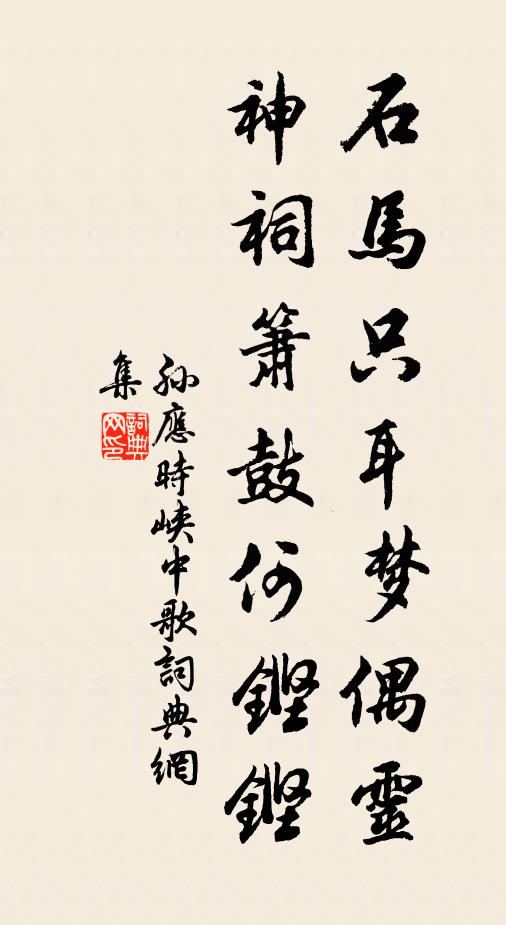 石馬只耳梦偶靈
神祠簫鼓何鏗鏗
孙應時峽中歌詞典網
集
詞典网印